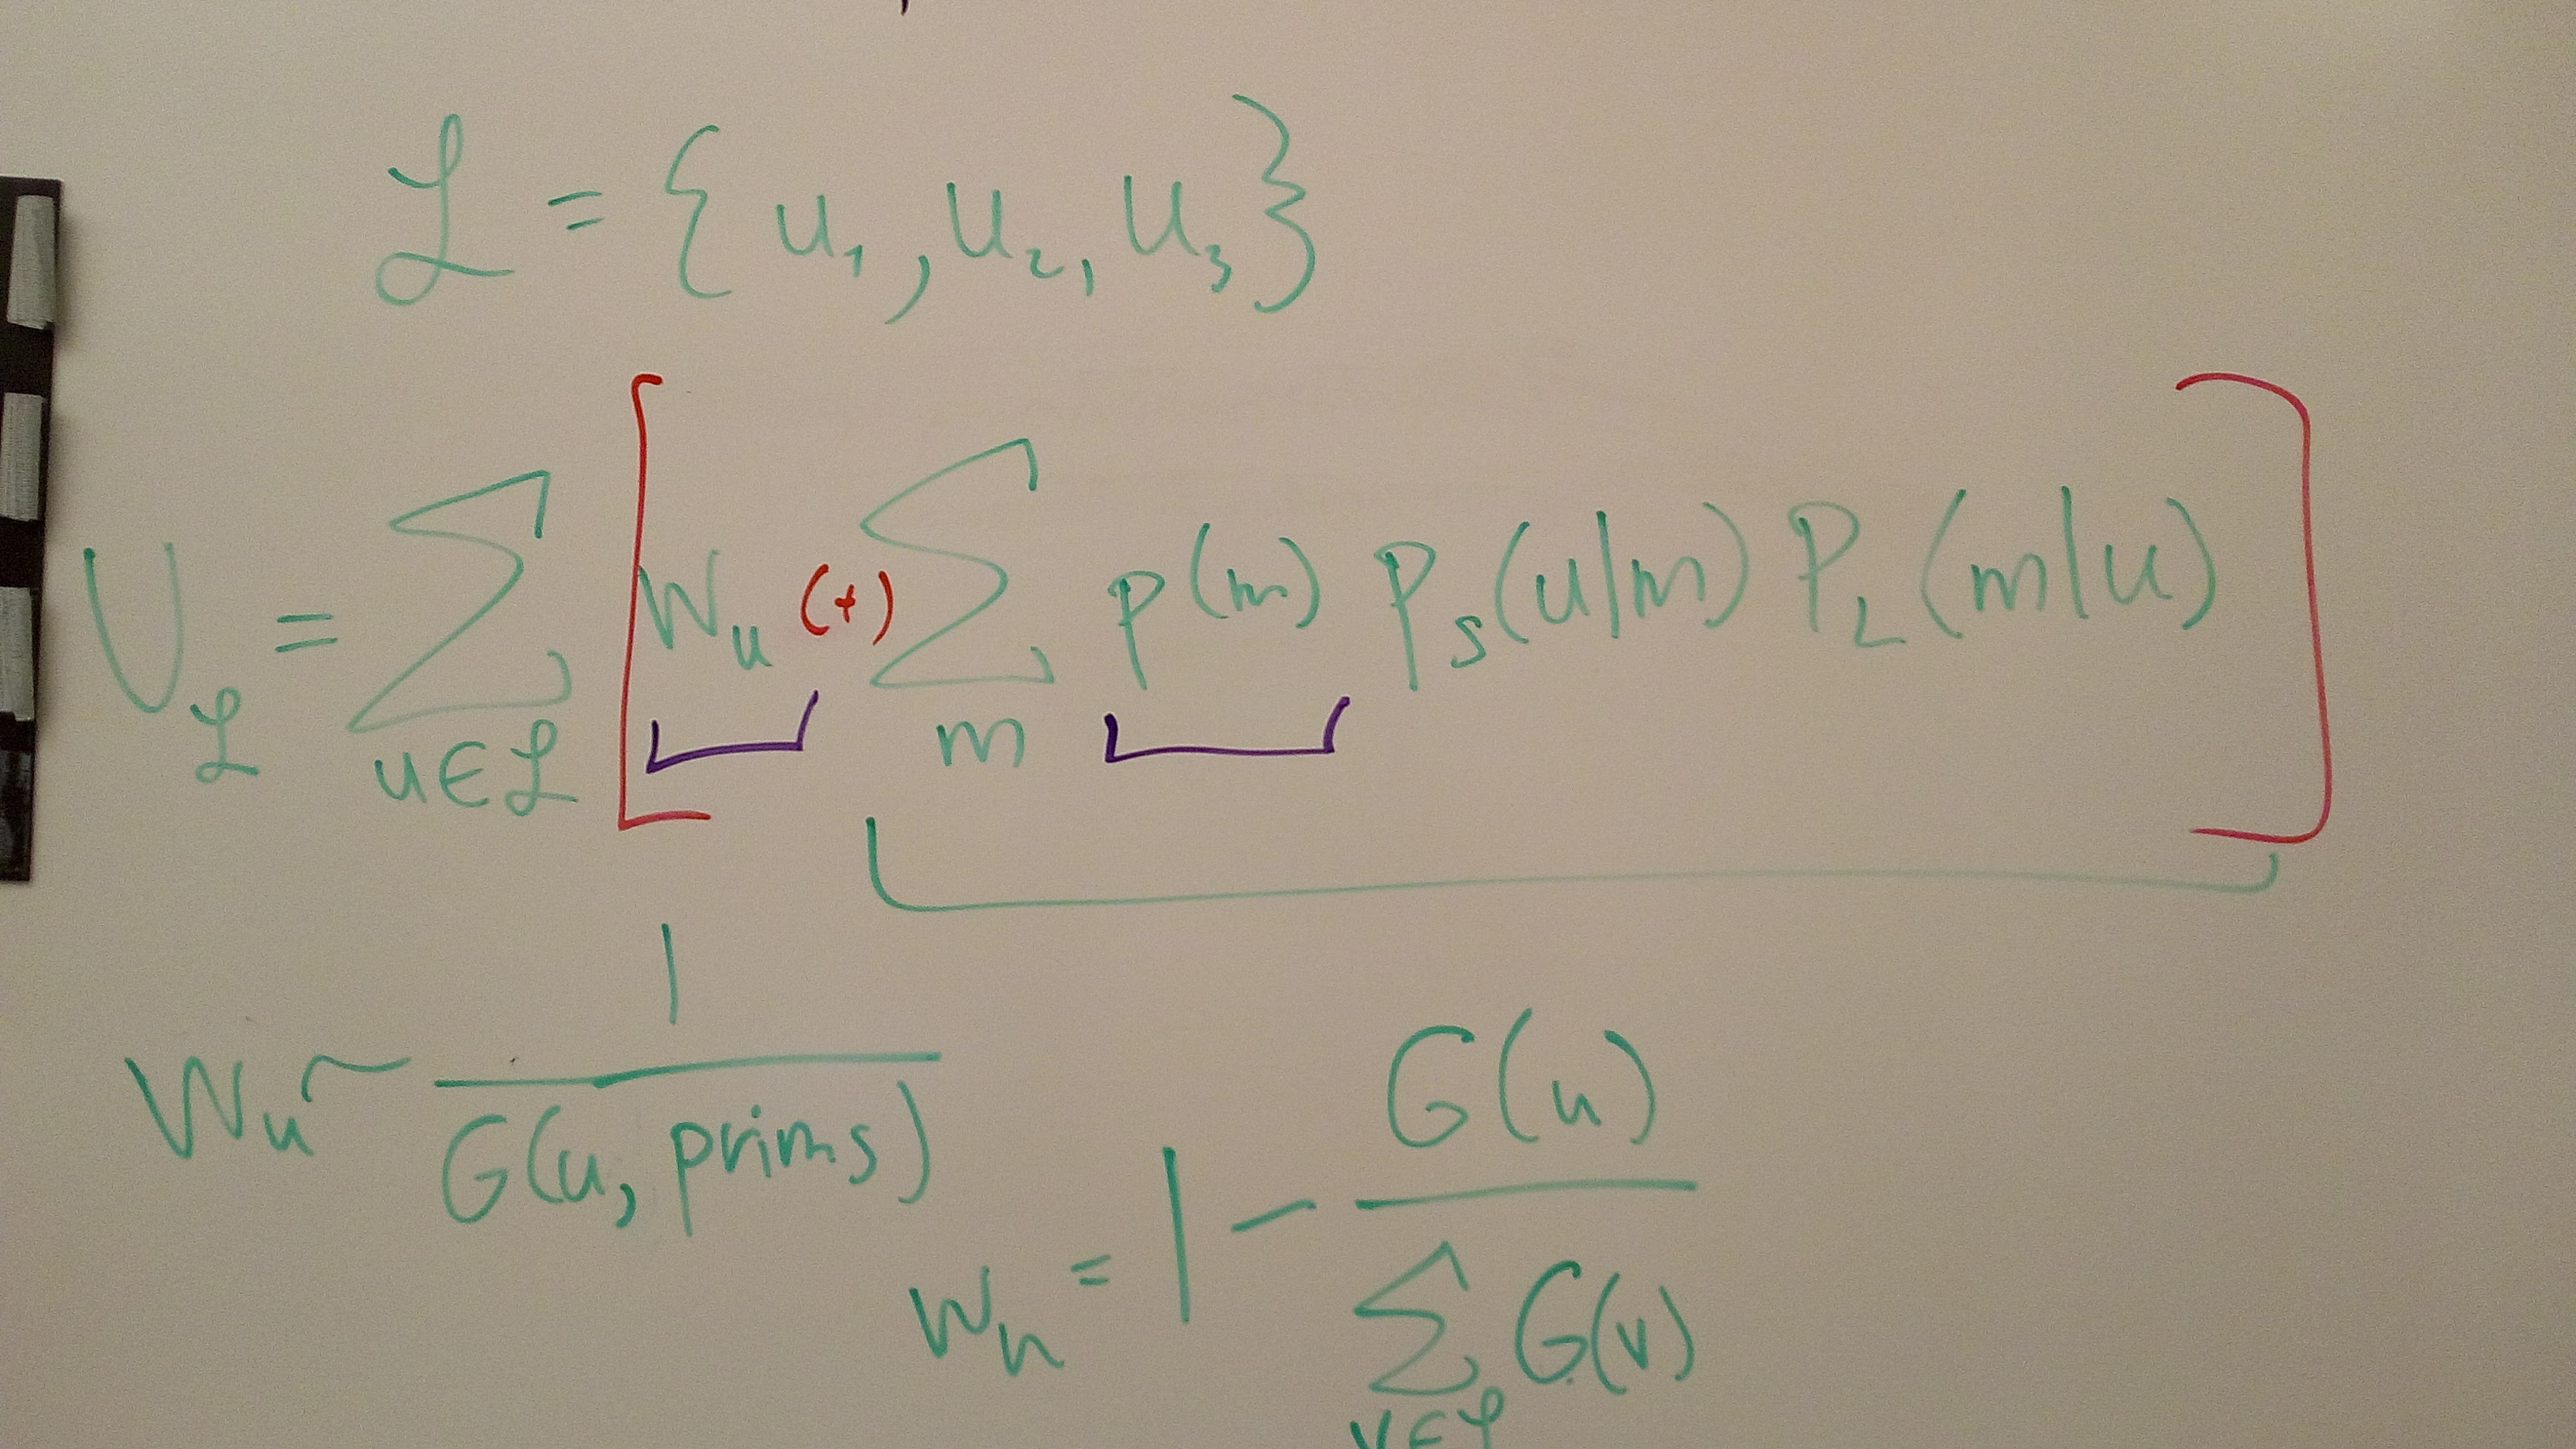 ℒ = { u₁, u₂, u₃ }
U_ℒ = ∑_{u∈ℒ} [ W_u (+) ∑_m p(m) P_s(u|m) P_L(m|u) ]
W_u ~ 1 / G(u, prims)
W_u = 1 − G(u) / ∑_{v∈ℒ} G(v)